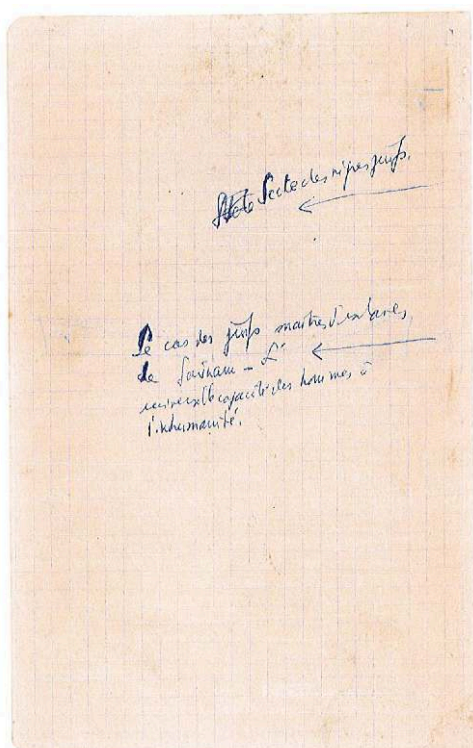 Secte des nègres juifs.
Le cas des juifs maîtres d'esclaves
de Surinam - L'
universelle capacité des hommes à
l'inhumanité.